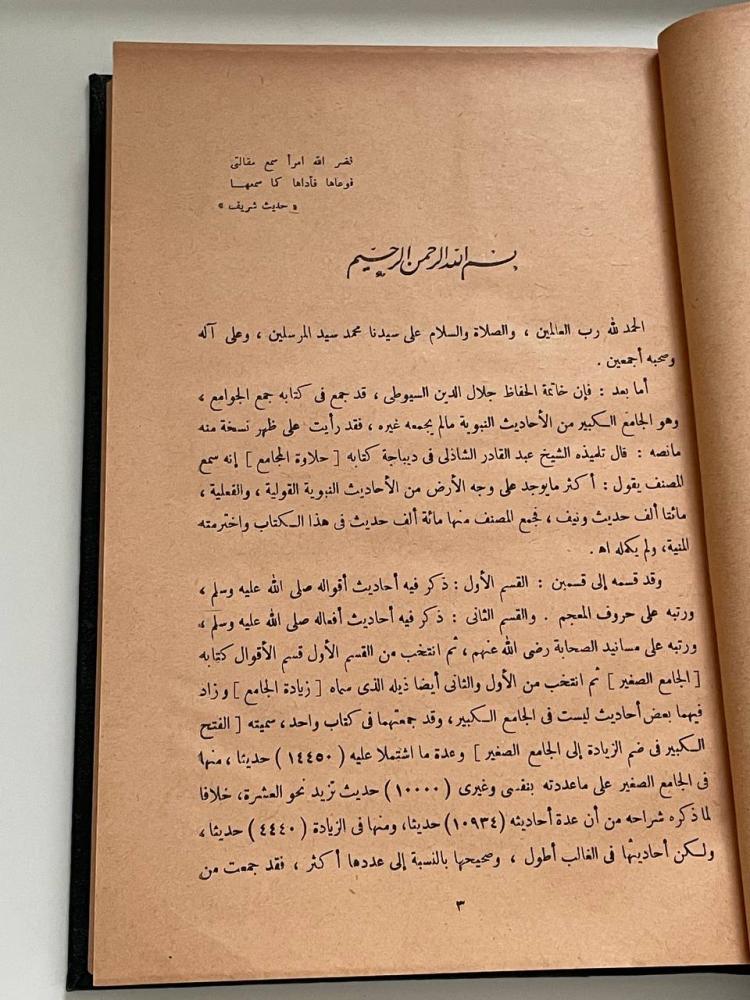 نضر الله امرأ سمع مقالتى
فوعاها فأداها كما سمعها
« حديث شريف »
بسم الله الرحمن الرحيم
الحمد لله رب العالمين ، والصلاة والسلام على سيدنا محمد سيد المرسلين ، وعلى آله
وصحبه أجمعين .
أما بعد : فإن خاتمة الحفاظ جلال الدين السيوطى ، قد جمع فى كتابه جمع الجوامع ،
وهو الجامع الكبير من الأحاديث النبوية مالم يجمعه غيره ، فقد رأيت على ظهر نسخة منه
مانصه : قال تلميذه الشيخ عبد القادر الشاذلى فى ديباجة كتابه [ حلاوة المجامع ] إنه سمع
المصنف يقول : أكثر مايوجد على وجه الأرض من الأحاديث النبوية القولية ، والفعلية ،
مائتا ألف حديث ونيف ، فجمع المصنف منها مائة ألف حديث فى هذا الكتاب واخترمته
المنية، ولم يكمله اهـ .
وقد قسمه إلى قسمين : القسم الأول : ذكر فيه أحاديث أقواله صلى الله عليه وسلم ،
ورتبه على حروف المعجم . والقسم الثانى : ذكر فيه أحاديث أفعاله صلى الله عليه وسلم ،
ورتبه على مسانيد الصحابة رضى الله عنهم ، ثم انتخب من القسم الأول قسم الأقوال كتابه
[ الجامع الصغير ] ثم انتخب من الأول والثانى أيضا ذيله الذى سماه [ زيادة الجامع ] وزاد
فيهما بعض أحاديث ليست فى الجامع الكبير، وقد جمعتهما فى كتاب واحد، سميته [ الفتح
الكبير فى ضم الزيادة إلى الجامع الصغير ] وعدة ما اشتملا عليه ( ١٤٤٥٠ ) حديثا ، منها
فى الجامع الصغير على ماعددته بنفسى وغيرى ( ١٠٠٠٠ ) حديث تزيد نحو العشرة، خلافا
لما ذكره شراحه من أن عدة أحاديثه (١٠٩٣٤) حديثا، ومنها فى الزيادة ( ٤٤٤٠ ) حديثا ،
ولكن أحاديثها فى الغالب أطول ، وصحيحها بالنسبة إلى عددها أكثر ، فقد جمعت من
٣